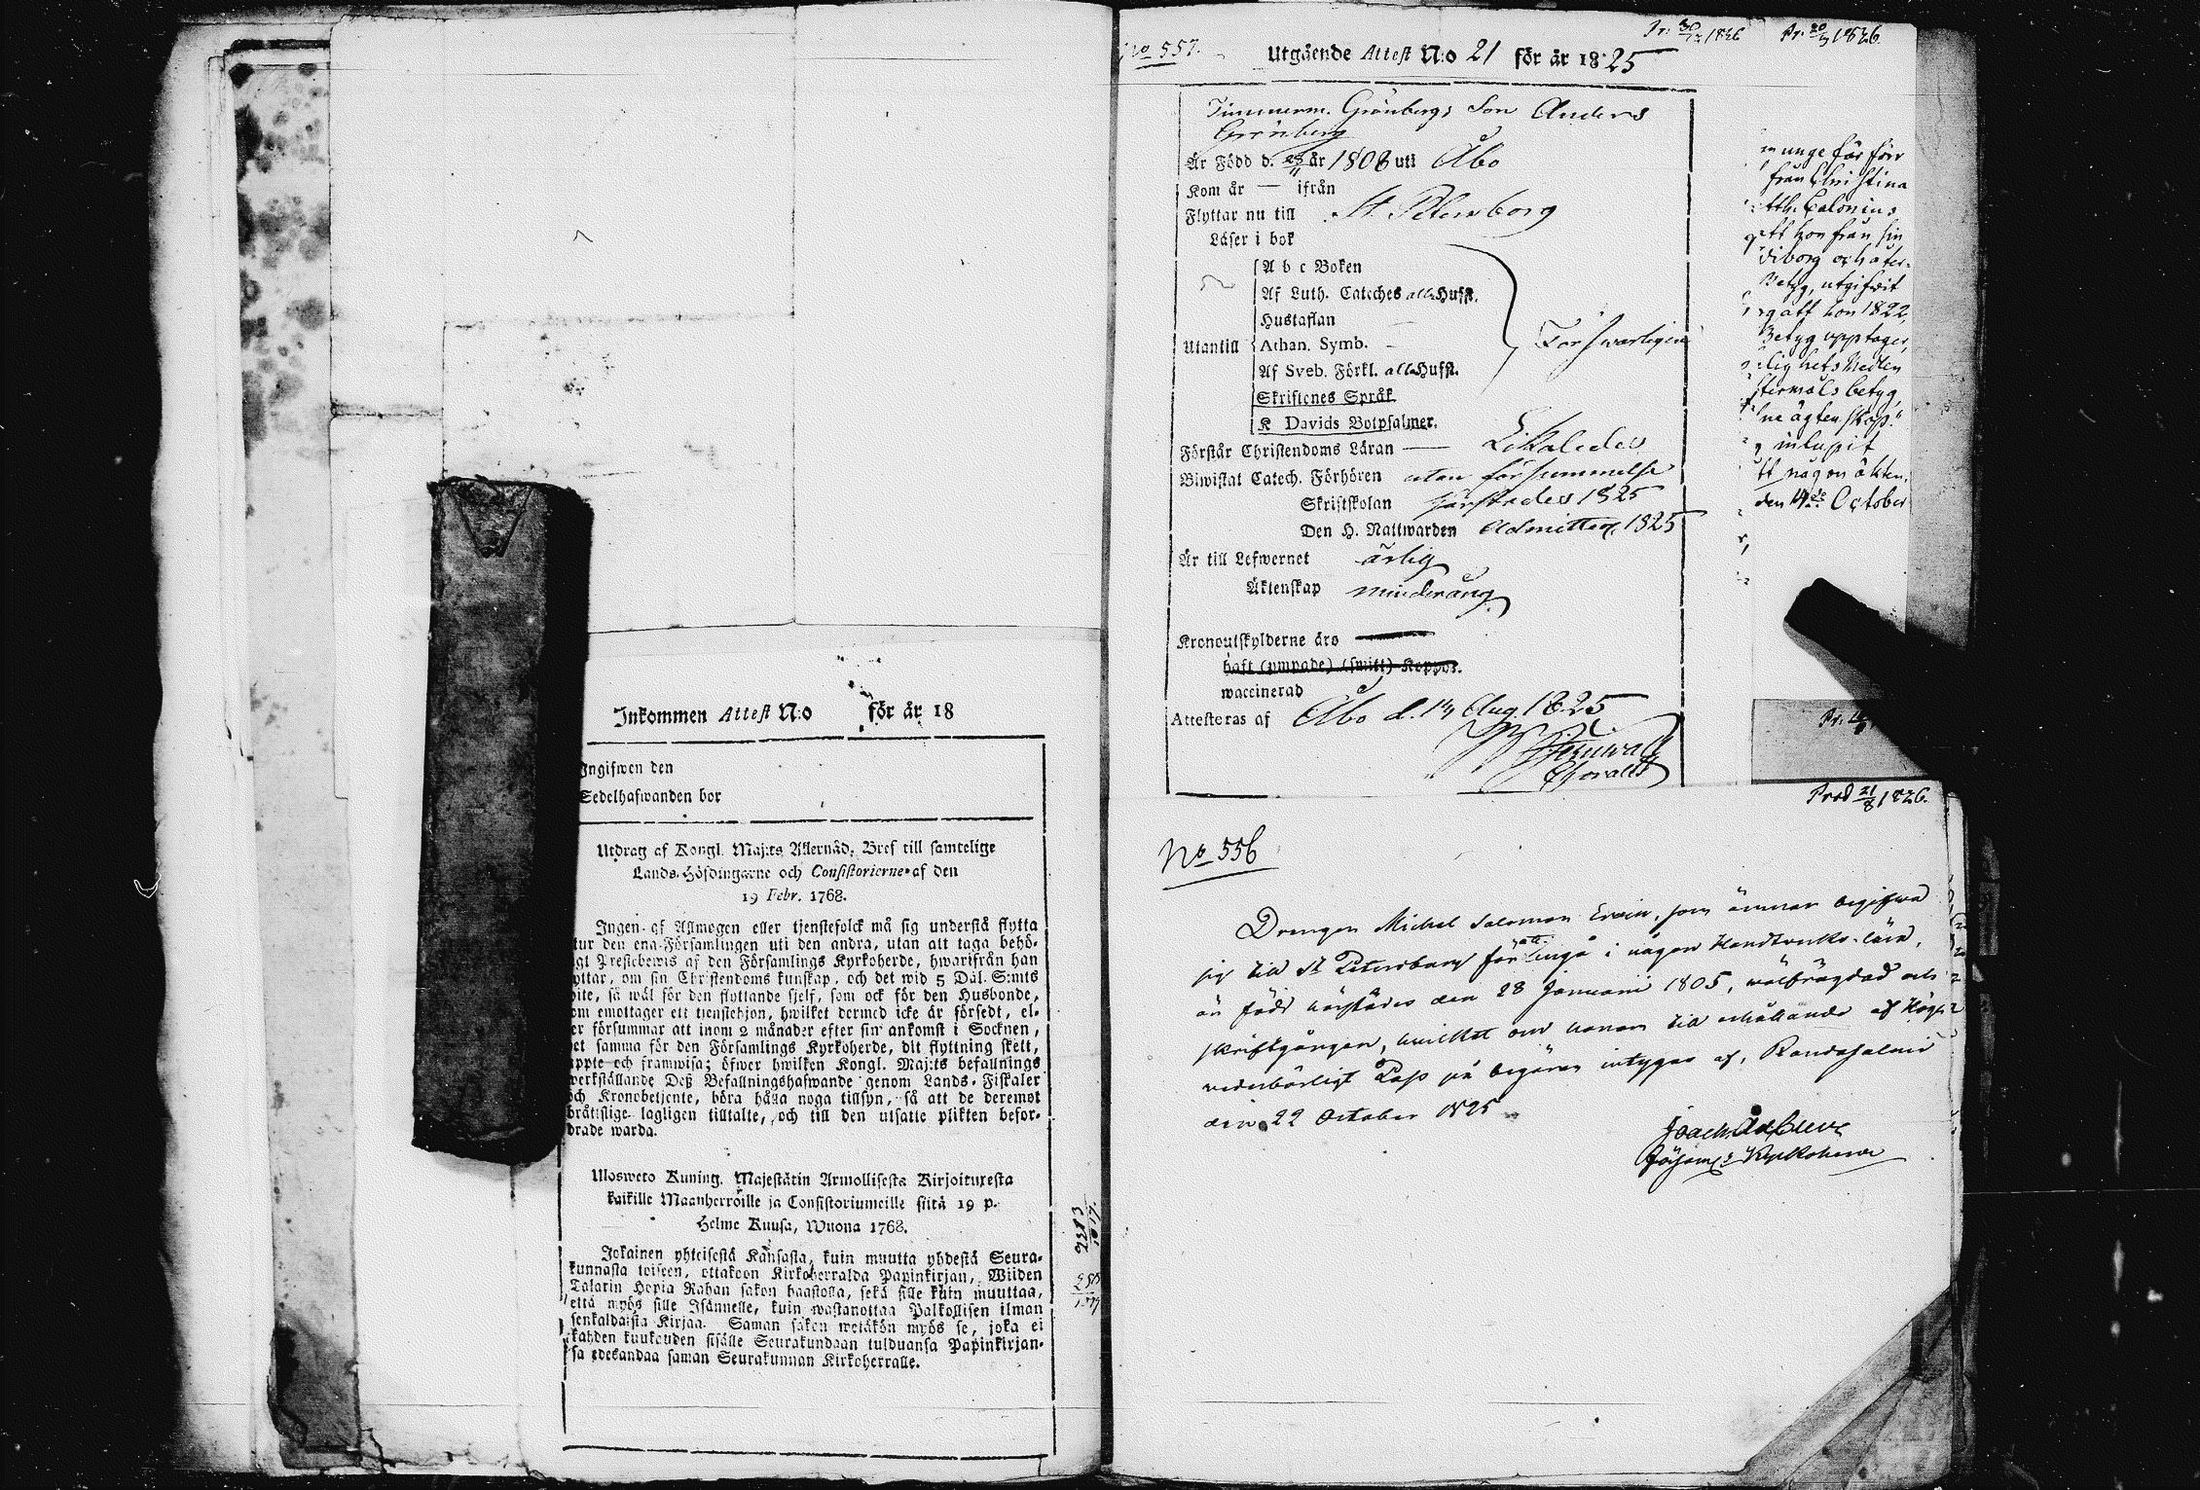 Inkommen Attest N:o för år 18
Ingifwen den
Sedelhafwanden bor
Utdrag af Kongl. Maj:ts Allernåd. Bref till samtelige
Lands-Höfdingarne och Consistorierne af den
19 Febr. 1768.
Ingen af Allmogen eller tjenstefolck må sig understå flytta
utur den ena Församlingen uti den andra, utan att taga behö-
Prestebewis af den Församlings Kyrkoherde, hwarifrån han
om sin Christendoms kunskap, och det wid 5 Dal. S:mts
så wäl för den flyttande sjelf, som ock för den Husbonde,
som emottager ett tjenstehjon, hwilket dermed icke är försedt, el-
er försummar att inom 2 månader efter sin ankomst i Socknen,
et samma för den Församlings Kyrkoherde, dit flyttning skett,
uppte och framwisa; öfwer hwilken Kongl. Maj:ts befallnings
werkställande Deß Befallningshafwande genom Lands-Fiskaler
och Kronobetjente, böra hålla noga tillsyn, så att de deremot
bråttslige lagligen tilltalte, och till den utsatte plikten befor-
drade warda.
Ulosweto Kuning. Majestätin Armollisesta Kirjoituxesta
kaikille Maanherroille ja Consistoriumeille siitä 19 p.
Helme Kuusa, Wuona 1768.
Jokainen yhteisestä Kansasta, kuin muutta yhdestä Seura-
kunnasta toiseen, ottakoon Kirkoherralda Papinkirjan, Wiiden
Talarin Hopia Rahan sakon haastolla, sekä sille kuin muuttaa,
että myös sille Isännelle, kuin wastanottaa Palkollisen ilman
senkaldaista Kirjaa. Saman sakon wetäkön myös se, joka ei
kahden kuukauden sisälle Seurakundaan tulduansa Papinkirjan-
sa edesandaa saman Seurakunnan Kirkoherralle.
No 557.
Utgående Attest N:o 21 för år 1825
Timmerm. Grönbergs Son Anders
Grönberg
Är Född d. 28/11 år 1808 uti Åbo
Kom år — ifrån
Flyttar nu till St. Petersborg
Läser i bok
A b c Boken
Af Luth. Cateches all. Hufst.
Hustaflan
Utantill Athan. Symb.
Af Sveb. Förkl. all. Hufst.
Skriftenes Språk
K Davids Botpsalmer.
Försvarligen
Förstår Christendoms Läran — Likaledes
Biwistat Catech. Förhören utan försummelse
Skriftskolan härstädes 1825
Den H. Nattwarden Admitter. 1825
Är till Lefwernet ärlig
Äktenskap minderårig
Kronoutskylderne äro
haft (ympade) (smitt) Koppor.
waccinerad
Attesteras af Åbo d. 14 Aug. 1825
Pr. 20/7 1826.
unge för förr
från Christina
Calonius
att hon från sin
Wiborg och åter-
Betyg, utgifvit
gått hon 1822,
Betyg upptager,
lighets Medlen
betyg,
ägtenskap."
inlupit
någon äkten.
den 4de October
Prod 21/8 1826.
No 556
Drengen Michel Salomon Ervin, som ämnar begifva
sig till St Petersburg för att ingå i någon Handtverks-lära,
är född härstädes den 28 Januarii 1805, välfrägdad och
skriftgången, hvilket om honom till erhållande af Höga
vederbörligt Pass på begäran intygas af, Randasalmi
den 22 October 1825
Kyrkoherde